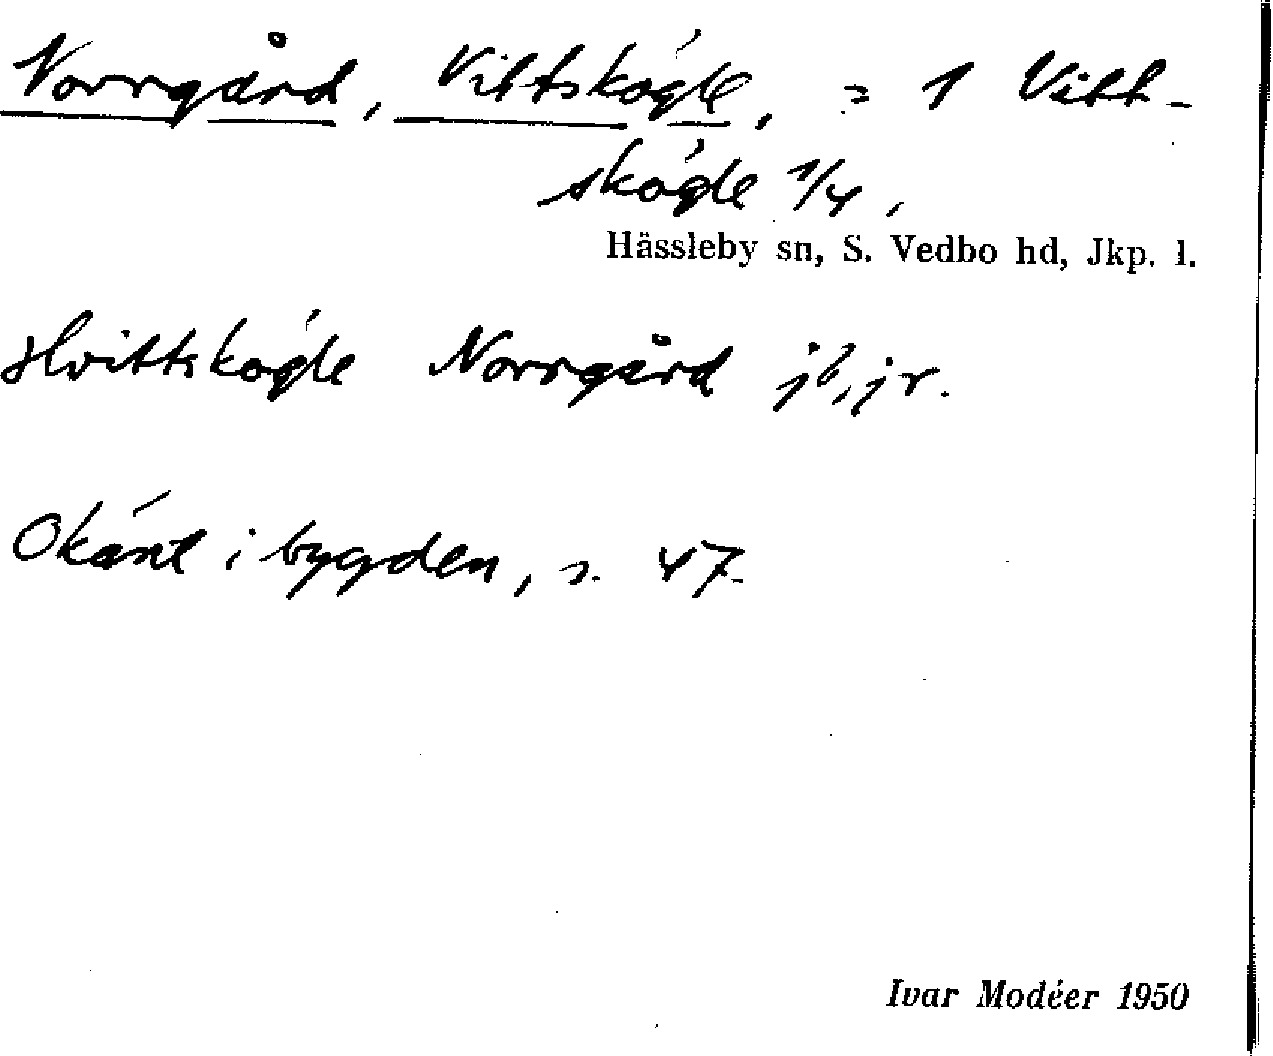 Norrgård, Vittskögle, = 1 Vitt-
skögle 1/4,
Hässleby sn, S. Vedbo hd, Jkp. l.
Hvittskögle Norrgård jb, jr.
Okänt i bygden, s. 47.
Ivar Modéer 1950